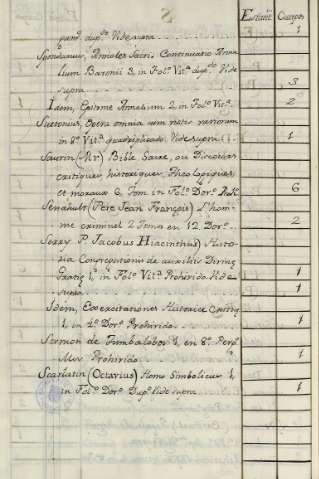 S
Estant. Cuerpos
perg.º dup.do Vide supra 1
Spondanus, Annales Sacri. Continuatio Anna
lium Baronii 3 in Fol.º Vit.ª dup.do Vide
supra 3
Idem, Epitome Annalium 2 in Fol.º Vit.ª 2
Suetonius, Opera omnia cum notis variorum
in 8.º Vit.ª quadriplicado. Vide supra 1
Saurin (Mr) Bible Sacre, ou Discours
critiques, historiques, Theologiques,
et moraux 6 Tom. in Fol.º Dor.º 6
Senahult (Pere Jean François) L'hom
me criminel 2 Tomos en 12 Dor.º 2
Serry P. Jacobus Hiacinthus) Histo
ria Congregationum de auxiliis Diving
in Fol.º Vit.ª Prohibido. Vide
supra 1
Idem, Exercitationes Historicæ
1, in 4.º Dor.º Prohivido 1
Sermon de 1, en 8.º Perg.º
Prohivido 1
Scarlatin (Octavius) Homo Simbolicus 1,
in Fol.º Dor.º Dup.do Vide supra 1